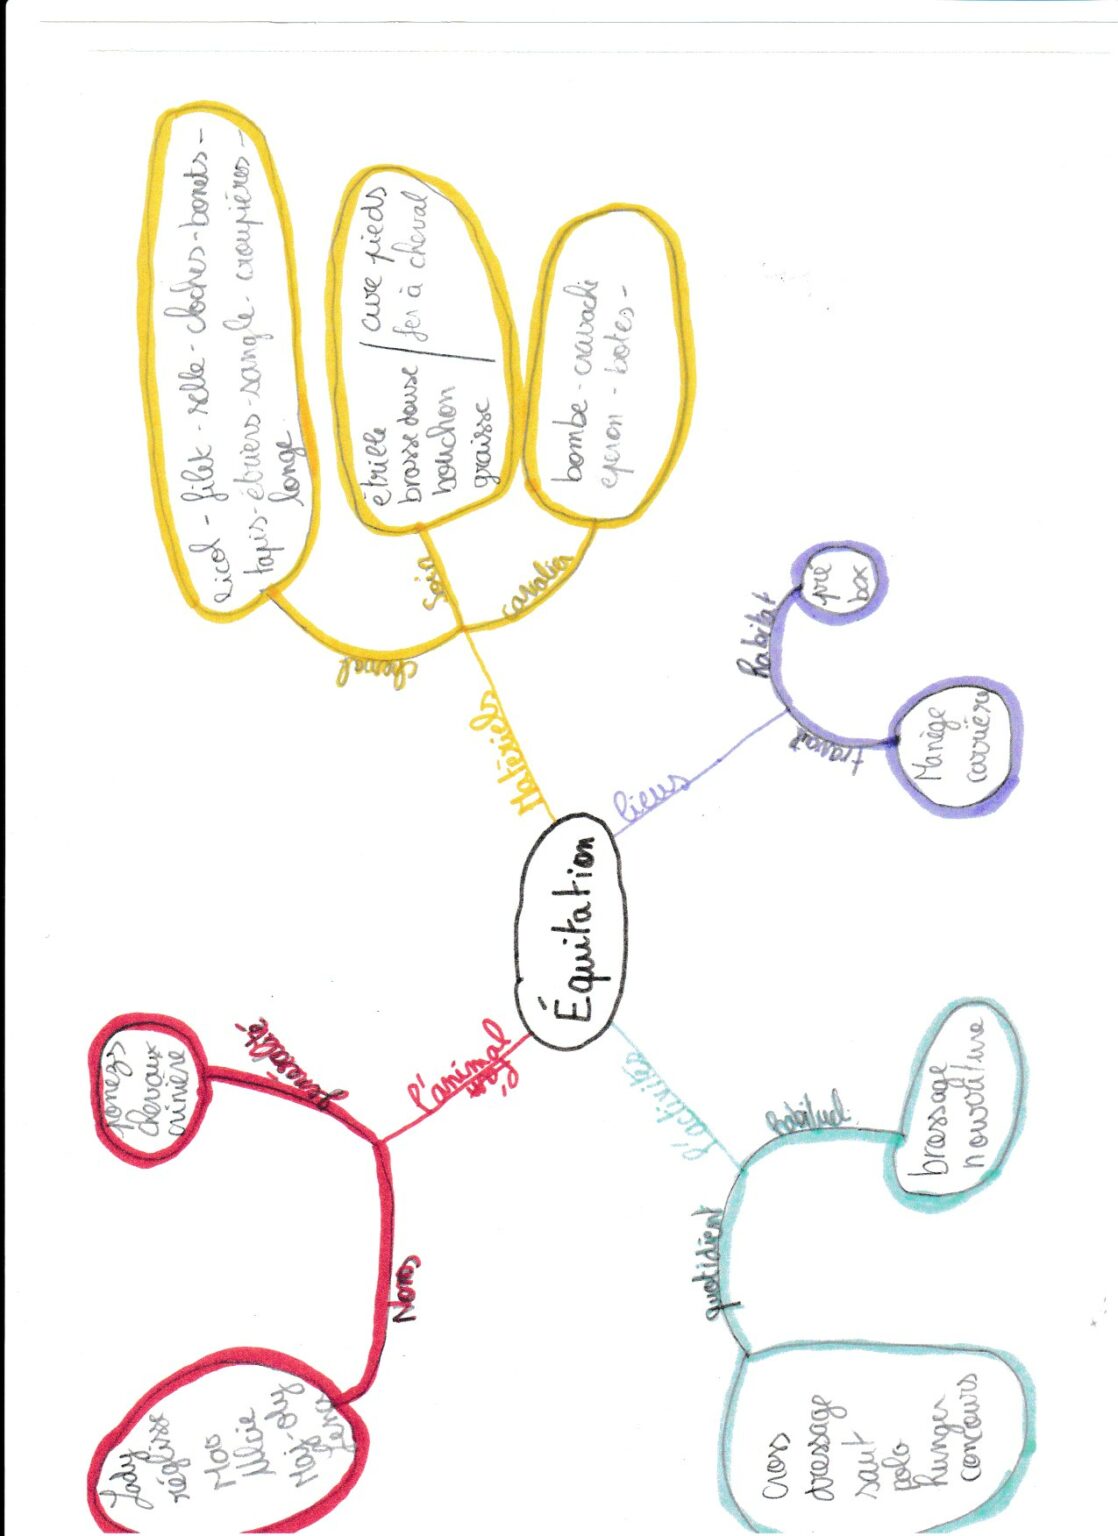 Équitation
l'animal
généralité
ponezs
chevaux
crinière
Noms
Lady
réglisse
Mao
Alcie
Maj-oly
Matériels
cheval
licol - filet - selle - cloches - bonets -
tapis - étriers - sangle - croupières -
longe
Soin
étrille
brosse douse
bouchon
graisse
cure pieds
fer à cheval
cavalier
bombe - cravache
eperon - botes -
lieus
habitat
pré
box
travail
Manège
carrière
l'activités
habitud
brossage
nourriture
quotidient
cross
dressage
saut
polo
hunger
concours